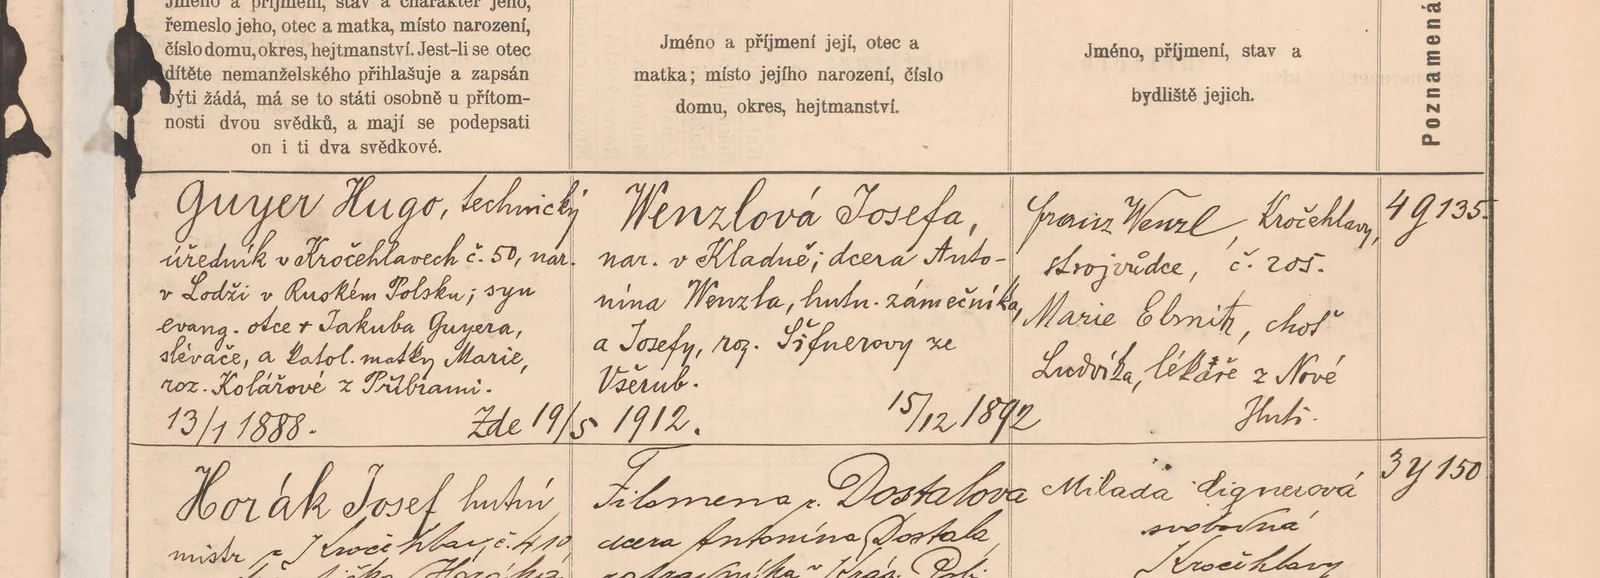 Jméno a příjmení, stav a charakter jeho,
řemeslo jeho, otec a matka, místo narození,
číslo domu, okres, hejtmanství. Jest-li se otec
dítěte nemanželského přihlašuje a zapsán
býti žádá, má se to státi osobně u přítom-
nosti dvou svědků, a mají se podepsati
on i ti dva svědkové.
Jméno a příjmení její, otec a
matka; místo jejího narození, číslo
domu, okres, hejtmanství.
Jméno, příjmení, stav a
bydliště jejich.
Poznamená
Guyer Hugo, technický
úředník v Kročehlavech č. 50, nar.
v Lodži v Ruském Polsku; syn
evang. otce † Jakuba Guyera,
slévače, a katol. matky Marie,
roz. Kolářové z Příbrami.
13/1 1888. Zde 19/5 1912.
Wenzlová Josefa,
nar. v Kladně; dcera Anto-
nína Wenzla, hutn. zámečníka,
a Josefy, roz. Šifnerovy ze
Všerub.
15/12 1892
Franz Wenzl, Kročehlavy,
strojvůdce, č. 205.
Marie, choť
Ludvíka, lékaře z Nové
Huti.
4 G 135
Horák Josef hutní
mistr v Kročehlav, č. 410
Filomena r. Dostalova
dcera Antonína Dostala
Milada
svobodná
Kročehlavy
3 Y 150